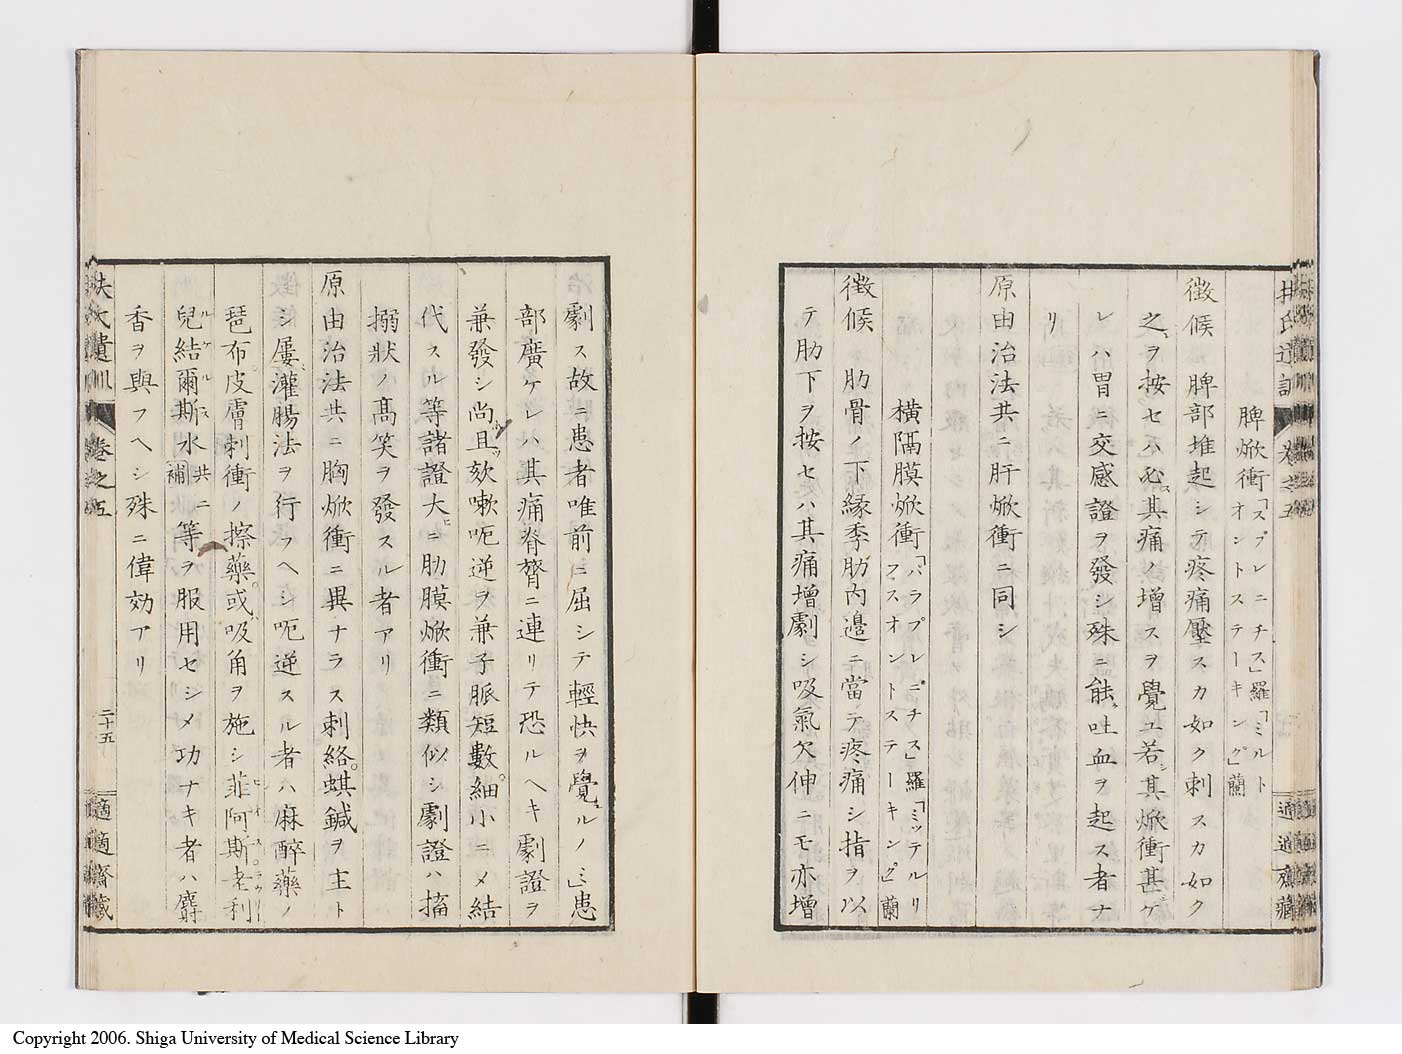 脾焮衝「スプレニチス」羅「ミルト
オントステーキング」蘭
徴候 脾部堆起シテ疼痛壓スカ如ク刺スカ如ク
之ヲ按セハ必其痛ノ增スヲ覺ユ若其焮衝甚ケ
レハ胃ニ交感證ヲ發シ殊ニ能吐血ヲ起ス者ナ
リ
原由治法共ニ肝焮衝ニ同シ
橫隔膜焮衝「パラプレニチス」羅「ミッテルリ
フスオントステーキング」蘭
徴候 肋骨ノ下縁季肋内邉ニ當テ疼痛シ指ヲ以
テ肋下ヲ按セハ其痛增劇シ吸氣欠伸ニモ亦增
劇ス故ニ患者唯前ニ屈シテ輕快ヲ覺ルノミ患
部廣ケレハ其痛脊膂ニ連リテ恐ルヘキ劇證ヲ
兼發シ尚且欬嗽呃逆ヲ兼子脈短數細小ニメ結
代スル等諸證大ニ肋膜焮衝ニ類似シ劇證ハ搐
搦狀ノ髙笑ヲ發スル者アリ
原由治法共ニ胸焮衝ニ異ナラス刺絡蜞鍼ヲ主ト
シ屢灌腸法ヲ行フヘシ呃逆スル者ハ麻醉藥ノ
琶布皮膚刺衝ノ擦藥或吸角ヲ施シ菲阿斯老利
兒結爾斯水共ニ補等ヲ服用セシメ功ナキ者ハ麝
香ヲ與フヘシ殊ニ偉効アリ
扶氏遺訓 卷之五
二十五
適適齋藏
Copyright 2006. Shiga University of Medical Science Library